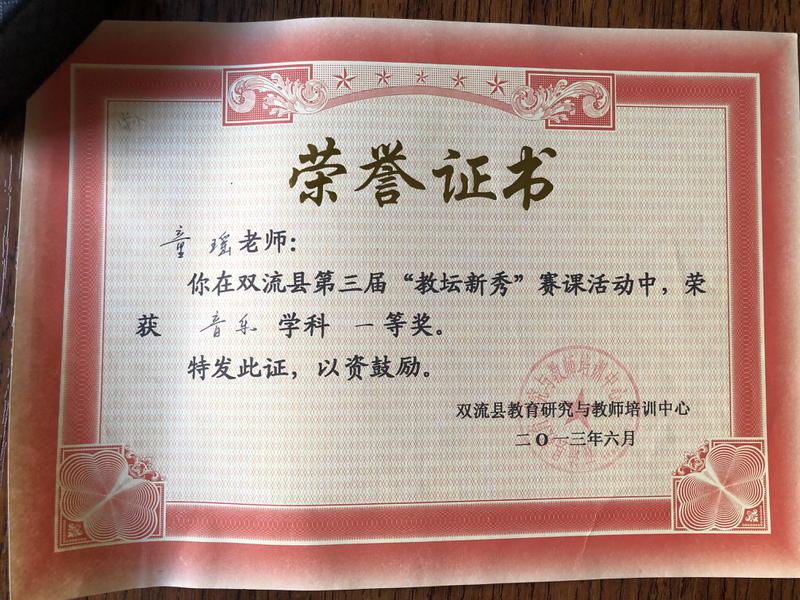 荣誉证书
童 瑶老师：
你在双流县第三届“教坛新秀”赛课活动中，荣
获 音乐 学科 一等奖。
特发此证，以资鼓励。
双流县教育研究与教师培训中心
二〇一三年六月